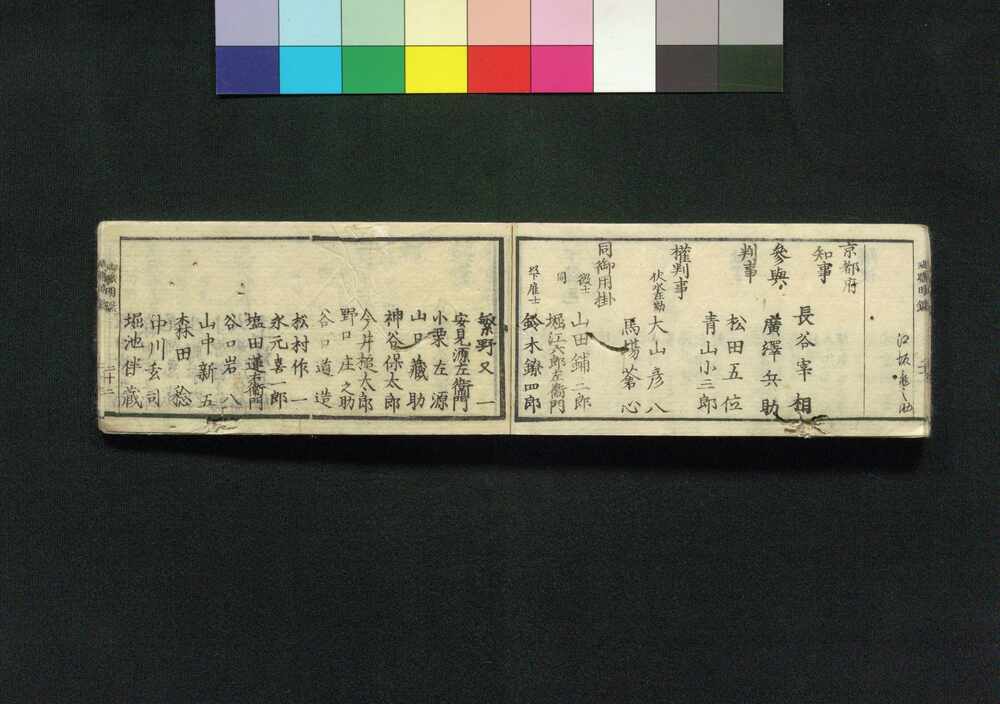 江坂
京都府
知事
長谷宰相
參與
廣澤兵助
判事
松田五位
青山小三郎
權判事
大山彦八
馬場蒼心
同御用掛
徴士
山田鋪二郎
同
堀江六郎左衛門
鈴木鐐四郎
繁野又一
安見源左衛門
小栗左源
山口藏助
神谷保太郎
今井極太郎
野口庄之助
谷口道造
松村作一
永元喜一郎
塩田蓮衛門
谷口岩八
山中新五
森田稔
中川玄司
堀池伴藏